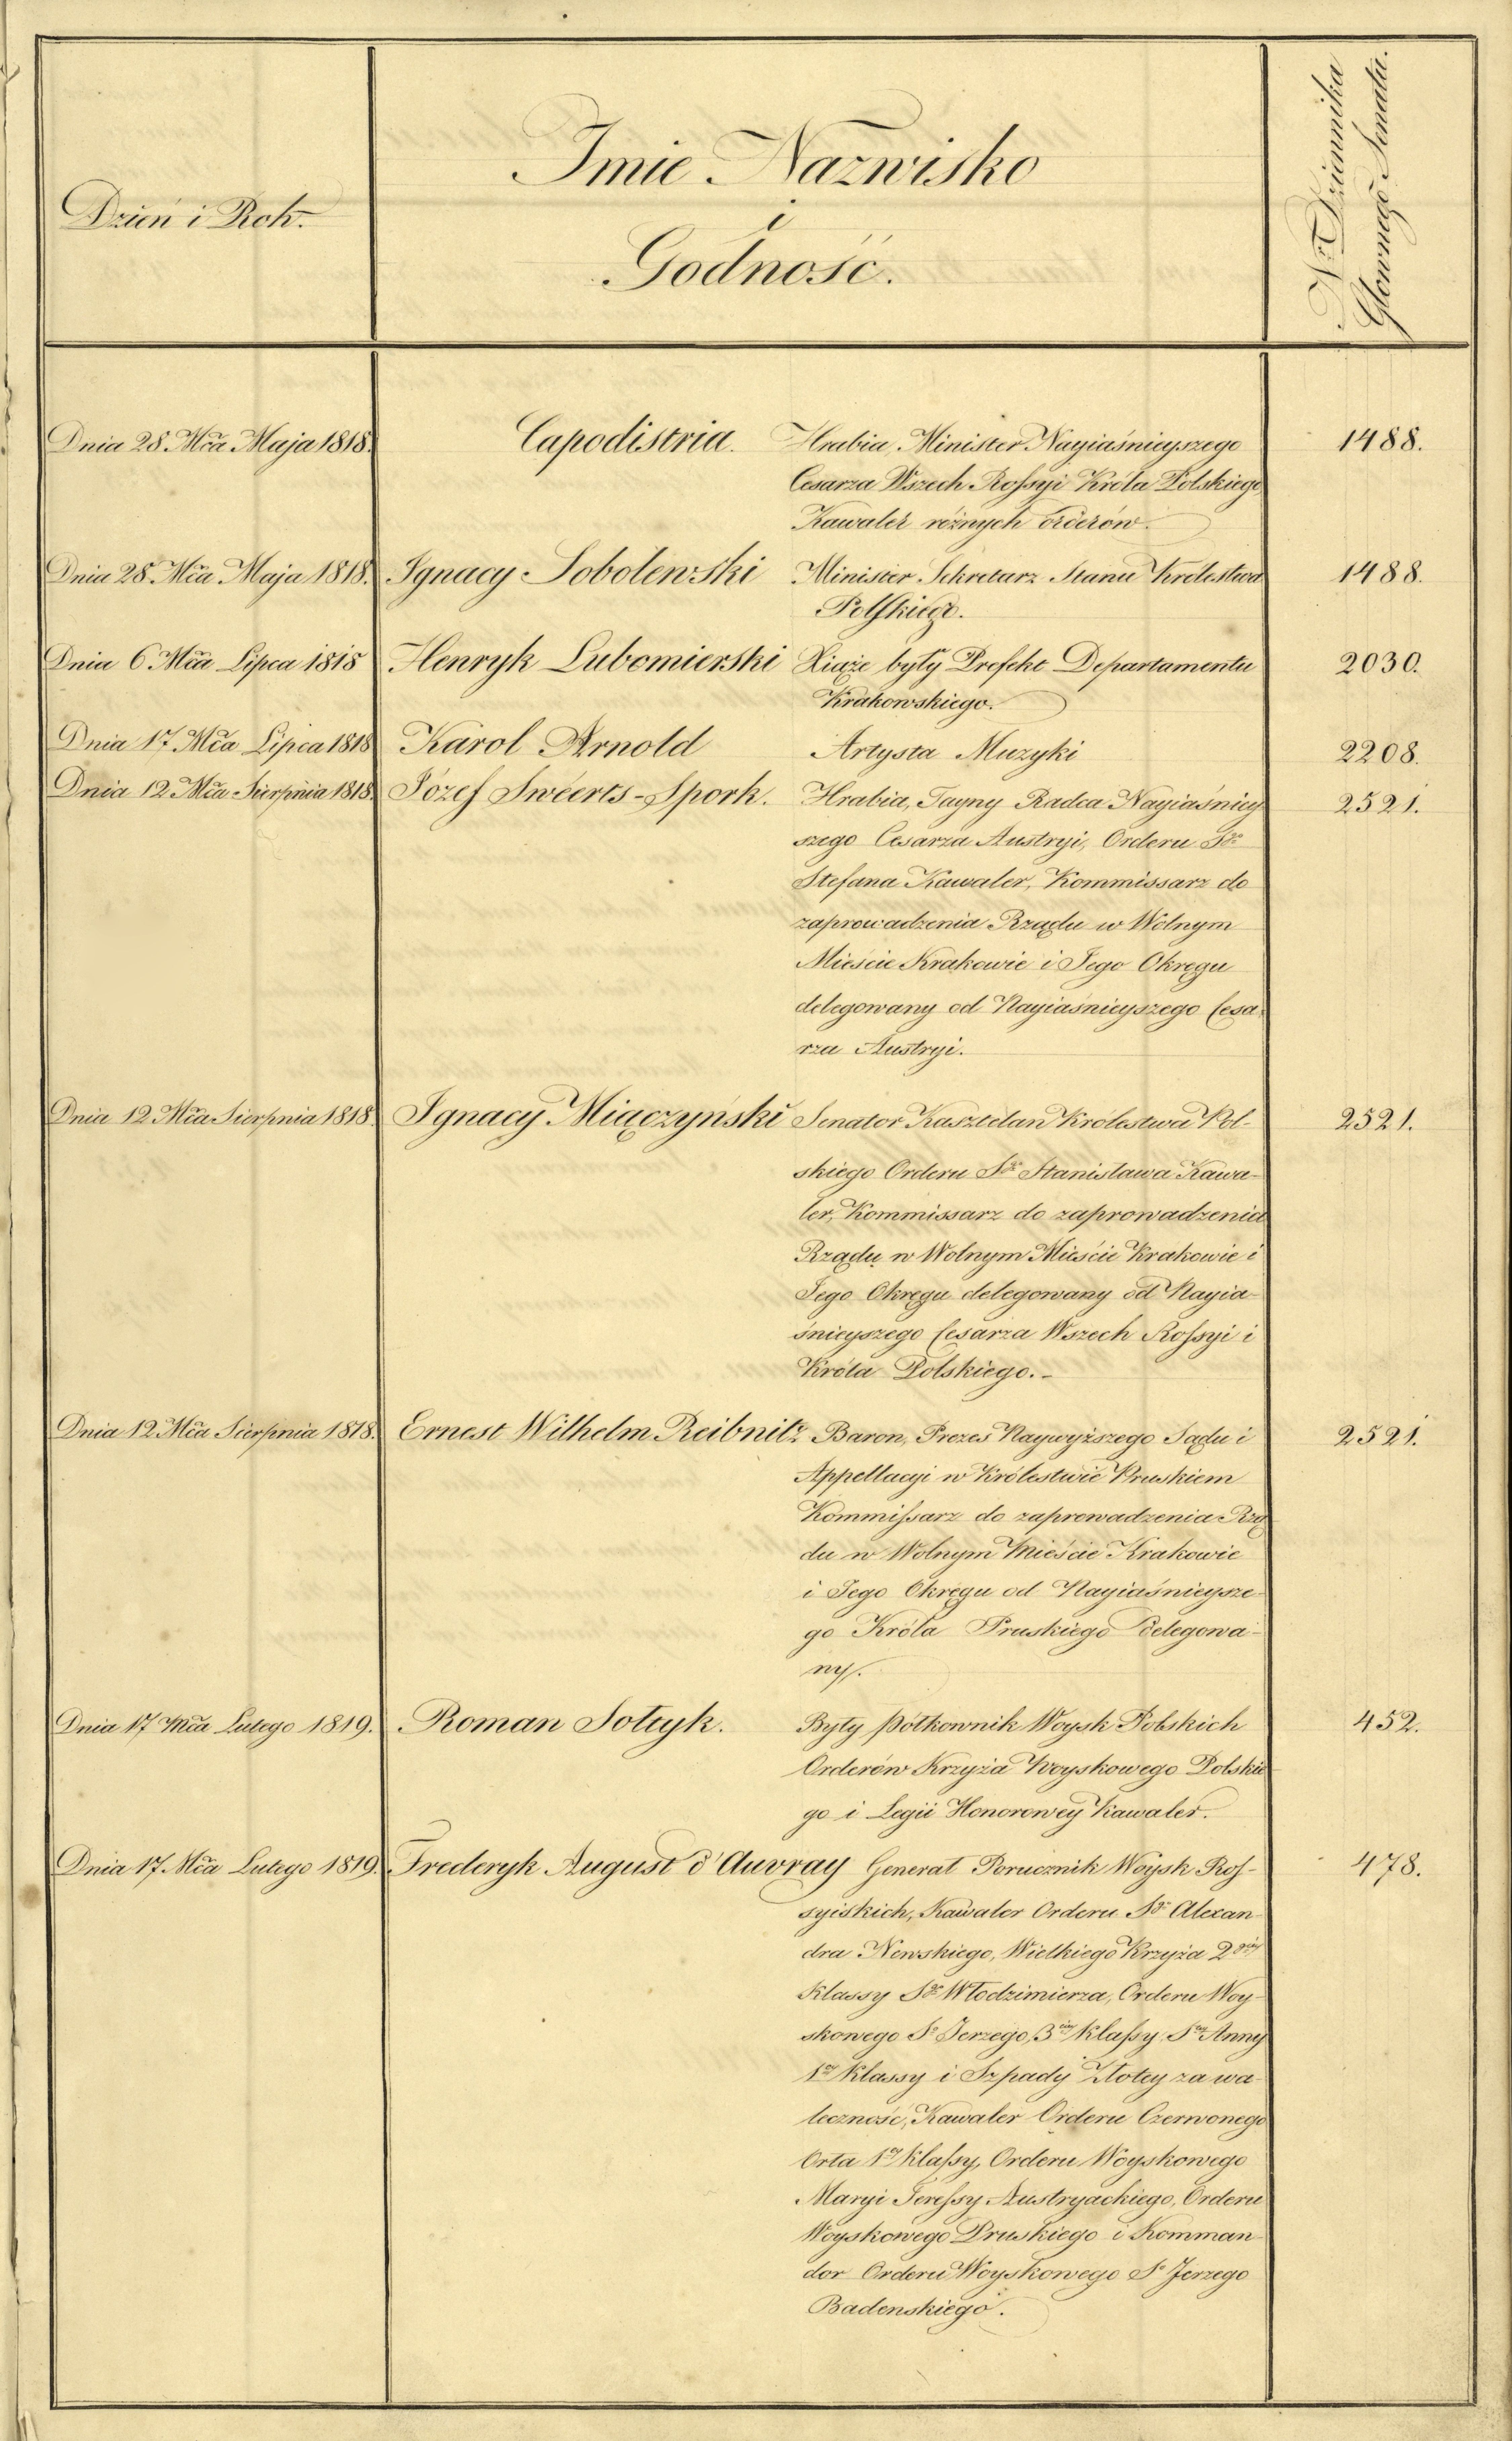 Dzień i Rok.
Imie Nazwisko
i
Godność.
Nr Dziennika
Głownego Senatu.
Dnia 28. Mca Maja 1818. Capodistria. Hrabia, Minister Nayiaśnieyszego 1488.
Cesarza Wszech Rossyi Króla Polskiego
Kawaler różnych orderów.
Dnia 28. Mca Maja 1818. Ignacy Sobolewski Minister Sekretarz Stanu Królestwa 1488.
Polskiego.
Dnia 6 Mca Lipca 1818 Henryk Lubomierski Xiąże były Prefekt Departamentu 2030.
Krakowskiego.
Dnia 17. Mca Lipca 1818 Karol Arnold Artysta Muzyki 2208.
Dnia 12 Mca Sierpnia 1818. Józef Swéerts-Spork. Hrabia, Tayny Radca Nayiaśniey 2521.
szego Cesarza Austryi, Orderu Sgo
Stefana Kawaler, Kommissarz do
zaprowadzenia Rządu w Wolnym
Mieście Krakowie i Jego Okręgu
delegowany od Nayiaśnieyszego Cesa-
rza Austryi.
Dnia 12 Mca Sierpnia 1818. Ignacy Miączyński Senator Kasztelan Królestwa Pol- 2521.
skiego Orderu Sgo Stanisława Kawa-
ler, Kommissarz do zaprowadzenia
Rządu w Wolnym Mieście Krakowie i
Jego Okręgu delegowany od Nayia-
śnieyszego Cesarza Wszech Rossyi i
Króla Polskiego.-
Dnia 12 Mca Sierpnia 1818. Ernest Wilhelm Reibnitz Baron, Prezes Naywyższego Sądu i 2521.
Appellacyi w Królestwie Pruskiem
Kommissarz do zaprowadzenia Rzą
du w Wolnym Mieście Krakowie
i Jego Okręgu od Nayiaśnieysze-
go Króla Pruskiego delegowa-
ny.
Dnia 17 Mca Lutego 1819. Roman Sołtyk. Były półkownik Woysk Polskich 452.
Orderów Krzyża Woyskowego Polskie
go i Legii Honorowey Kawaler.
Dnia 17. Mca Lutego 1819. Frederyk August d'Auvray Generał Porucznik Woysk Ros- 478.
syiskich, Kawaler Orderu Sgo Alexan-
dra Newskiego, Wielkiego Krzyża 2giey
Klassy Sgo Włodzimierza, Orderu Woy-
skowego Sgo Jerzego, 3ciey Klassy Stey Anny
1ey Klassy i Szpady Złotey za wa-
leczność, Kawaler Orderu Czerwonego
Orła 1ey Klassy, Orderu Woyskowego
Maryi Teressy Austryackiego, Orderu
Woyskowego Pruskiego i Komman-
dor Orderu Woyskowego Sgo Jerzego
Badenskiego.